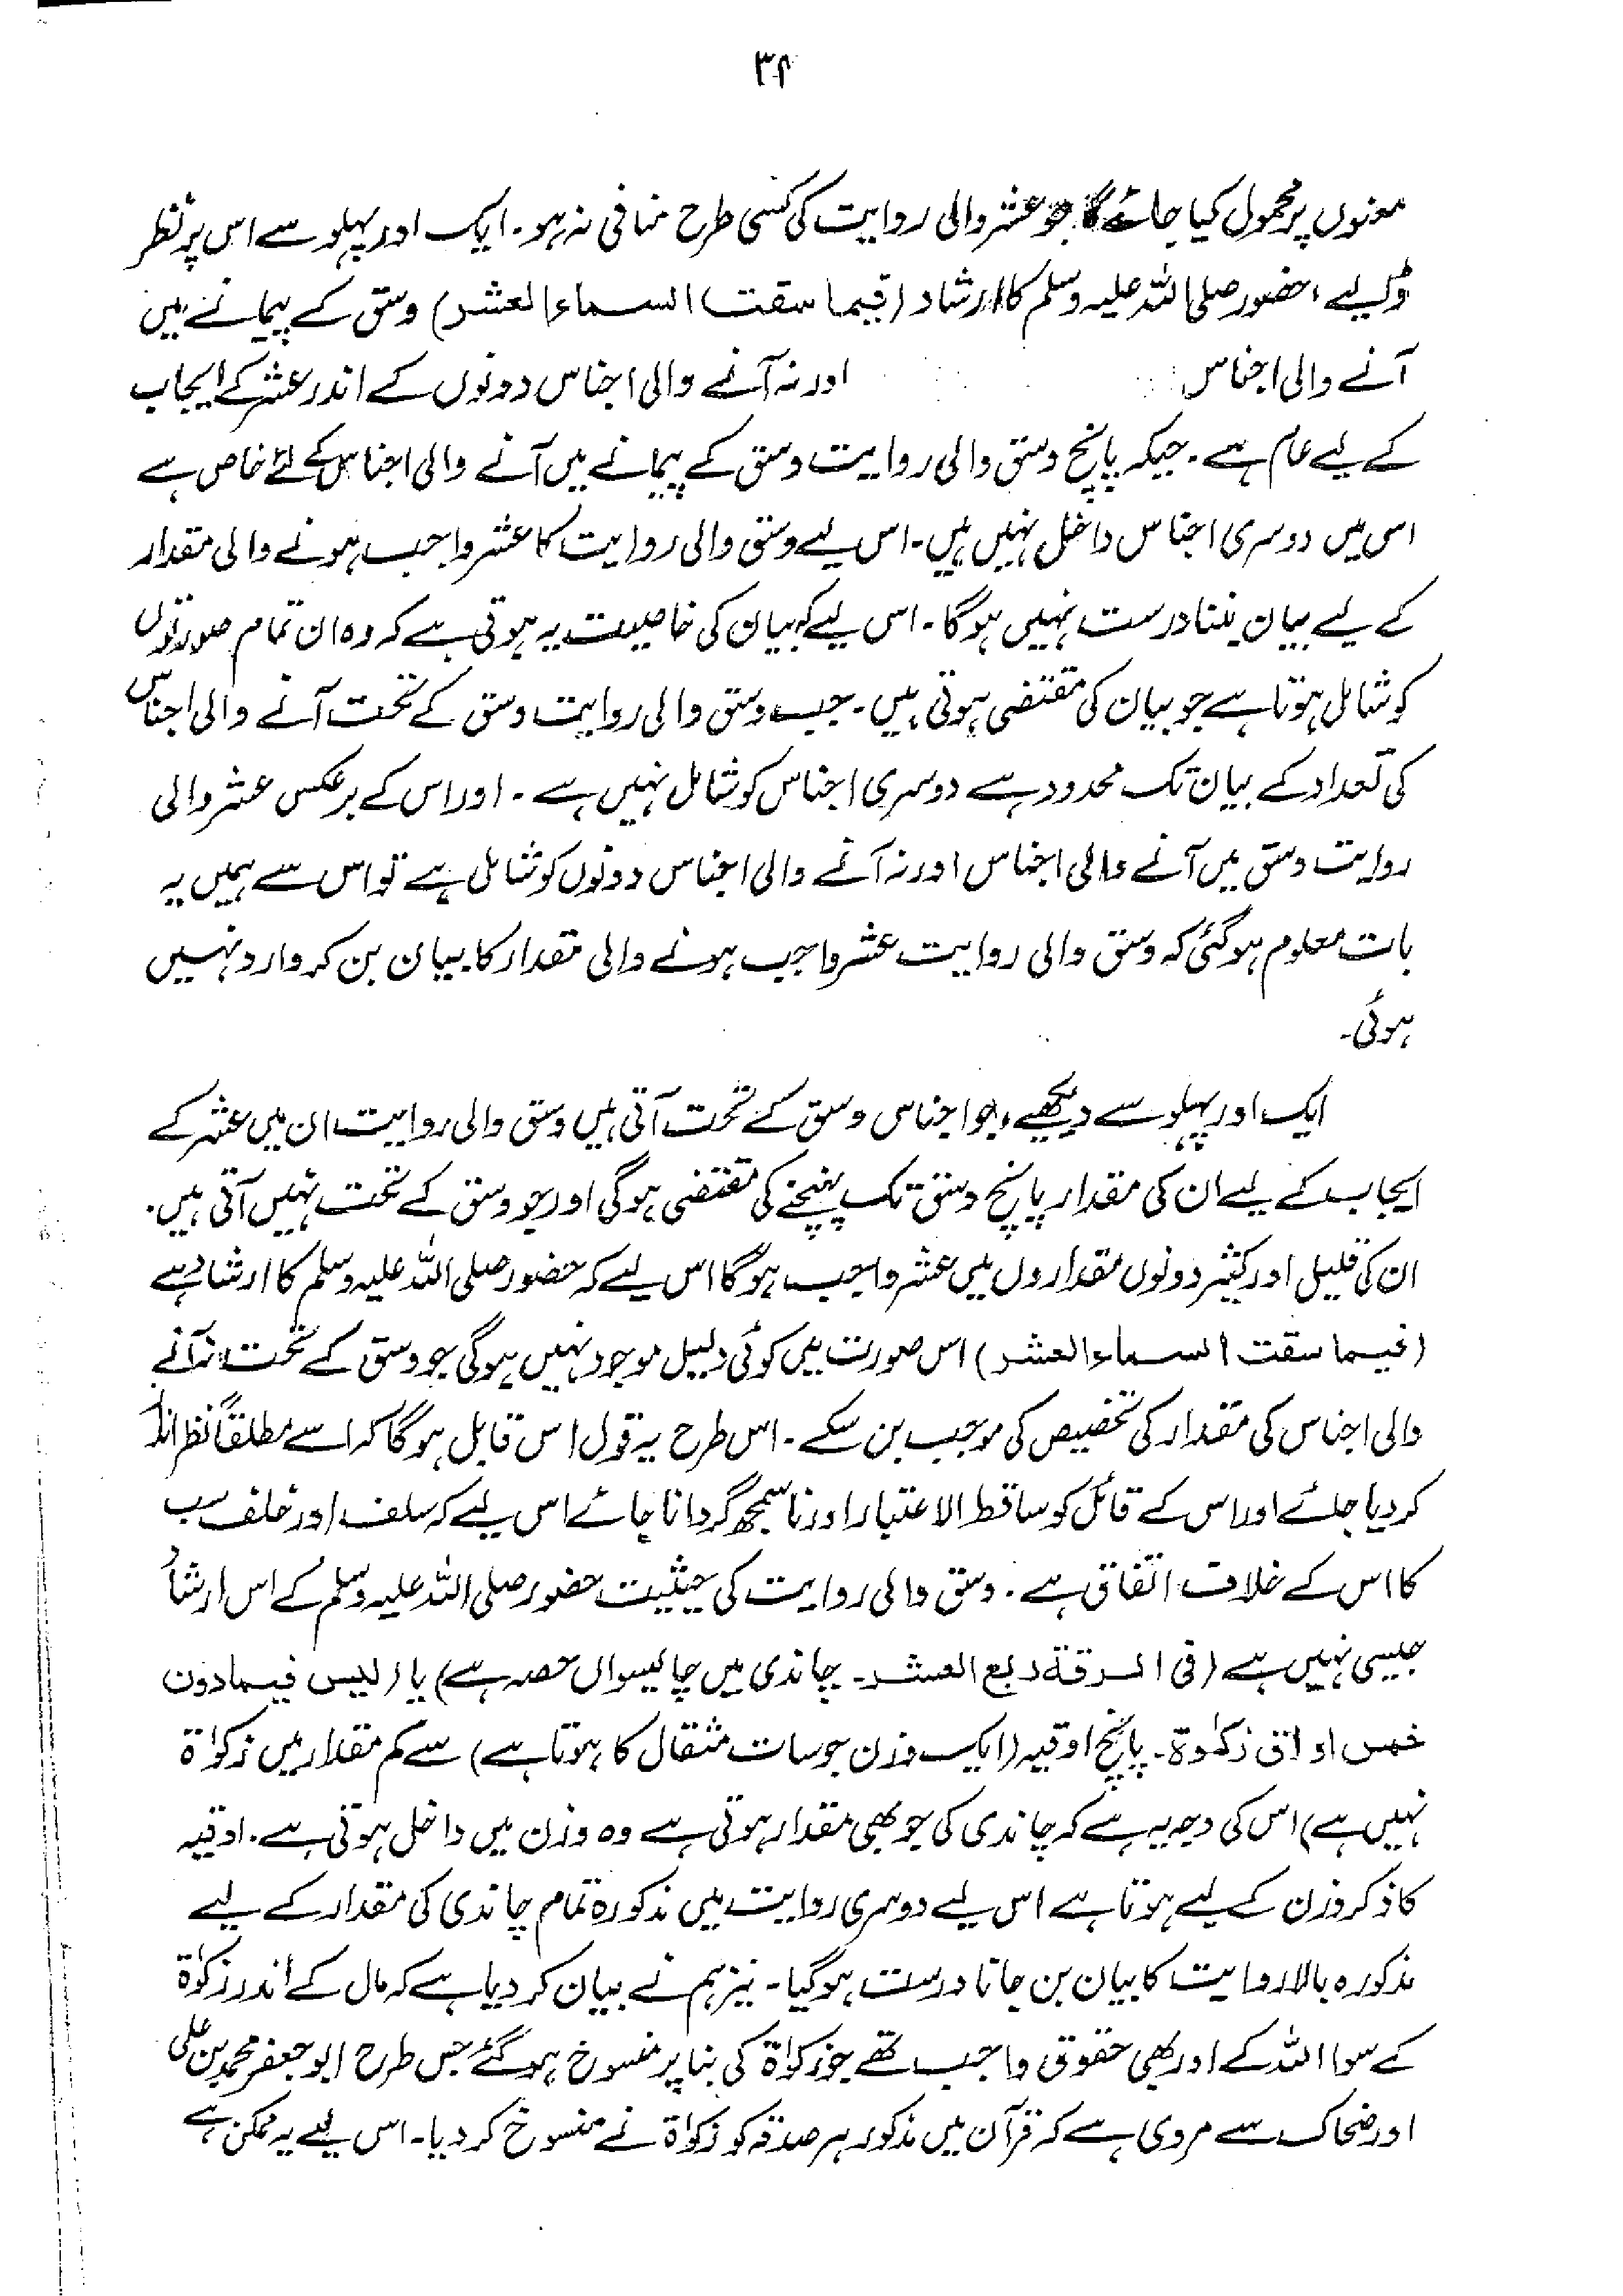 ۳۴
معنوں پر محمول کیا جائے گا جو عشر والی روایت کی کسی طرح منافی نہ ہو۔ ایک اور پہلو سے اس پر نظر
ڈالیے، حضور صلی اللہ علیہ وسلم کا ارشاد (فیما سقت السماء العشر) وسق کے پیمانے میں
آنے والی اجناس اور نہ آنے والی اجناس دونوں کے اندر عشر کے ایجاب
کے لیے عام ہے۔ جبکہ پانچ وسق والی روایت وسق کے پیمانے میں آنے والی اجناس کے لئے خاص ہے
اس میں دوسری اجناس داخل نہیں ہیں۔ اس لیے وسق والی روایت کا عشر واجب ہونے والی مقدار
کے لیے بیان بننا درست نہیں ہوگا۔ اس لیے کہ بیان کی خاصیت یہ ہوتی ہے کہ وہ ان تمام صورتوں
کو شامل ہوتا ہے جو بیان کی مقتضی ہوتی ہیں۔ جب وسق والی روایت وسق کے تحت آنے والی اجناس
کی تعداد کے بیان تک محدود ہے دوسری اجناس کو شامل نہیں ہے۔ اور اس کے برعکس عشر والی
روایت وسق میں آنے والی اجناس اور نہ آنے والی اجناس دونوں کو شامل ہے تو اس سے ہمیں یہ
بات معلوم ہو گئی کہ وسق والی روایت عشر واجب ہونے والی مقدار کا بیان بن کر وارد نہیں
ہوئی۔
ایک اور پہلو سے دیکھیے، جو اجناس وسق کے تحت آتی ہیں وسق والی روایت ان میں عشر کے
ایجاب کے لیے ان کی مقدار پانچ وسق تک پہنچنے کی مقتضی ہوگی اور جو وسق کے تحت نہیں آتی ہیں۔
ان کی قلیل اور کثیر دونوں مقداروں میں عشر واجب ہوگا اس لیے کہ حضور صلی اللہ علیہ وسلم کا ارشاد ہے
(فیما سقت السماء العشر) اس صورت میں کوئی دلیل موجود نہیں ہوگی جو وسق کے تحت نہ آنے
والی اجناس کی مقدار کی تخصیص کی موجب بن سکے۔ اس طرح یہ قول اس قابل ہوگا کہ اسے مطلقاً نظر انداز
کر دیا جائے اور اس کے قائل کو ساقط الاعتبار اور نا سمجھ گردانا جائے اس لیے کہ سلف اور خلف سب
کا اس کے خلاف اتفاق ہے۔ وسق والی روایت کی حیثیت حضور صلی اللہ علیہ وسلم کے اس ارشاد
جیسی نہیں ہے (فی الرقۃ ربع العشر۔ چاندی میں چالیسواں حصہ ہے) یا (لیس فیما دون
خمس اواق زکوٰۃ۔ پانچ اوقیہ (ایک وزن جو سات مثقال کا ہوتا ہے) سے کم مقدار میں زکوٰۃ
نہیں ہے) اس کی وجہ یہ ہے کہ چاندی کی جو بھی مقدار ہوتی ہے وہ وزن میں داخل ہوتی ہے۔ اوقیہ
کا ذکر وزن کے لیے ہوتا ہے اس لیے دوسری روایت میں مذکورہ تمام چاندی کی مقدار کے لیے
مذکورہ بالا روایت کا بیان بن جانا درست ہو گیا۔ نیز ہم نے بیان کر دیا ہے کہ مال کے اندر زکوٰۃ
کے سوا اللہ کے اور بھی حقوق واجب تھے جو زکوٰۃ کی بنا پر منسوخ ہو گئے جس طرح ابو جعفر محمد بن علی
اور ضحاک سے مروی ہے کہ قرآن میں مذکور ہر صدقہ کو زکوٰۃ نے منسوخ کر دیا۔ اس لیے یہ ممکن ہے